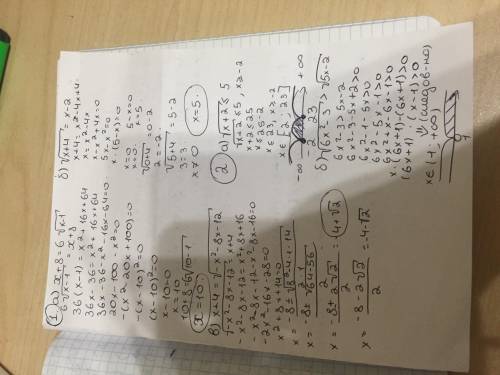 1 а) x+8=6√x-1
6√x-1=x+8
36(x-1)=x²+16x+64
36x-36=x²+16x+64
36x-36-x²-16x-64=0
20x-100-x²=0
-(x²-20x+100)=0
-(x-10)²=0
(x-10)²=0
x-10=0
x=10
10+8=6√10-1
x=10.
в) x+4=√-x²-8x-12
√-x²-8x-12=x+4
-x²-8x-12=x²+8x+16
-x²-8x-12-x²-8x-16=0
-2x²-16x-28=0
x²+8x+14=0
x=-8±√8²-4·1·14
2·1
x=-8±√64-56
2
x=-8±2√2
2
=4+√2
x=-8-2√2
2
=-4-√2
б) √x+4=x-2
x+4=x²-4x+4
x=x²-4x
x-x²+4x=0
5x-x²=0
x·(5-x)=0
x=0 5-x=0
x=0 x=5
√0+4=0-2
2=-2
√5+4=5-2
3=3
x≠0
x=5
2 а) √x+2≤5
√x+2≤5, x≥-2
x+2≤25
x≤25-2
x≤23, x≥-2
x∈[-2;23]
-∞ -2 23 +∞
б) √6x²-3>√5x-2
6x²-3>5x-2
6x²-3-5x+2>0
6x²-1-5x>0
6x²-5x-1>0
6x²+x-6x-1>0
x·(6x+1)-(6x+1)>0
(6x+1)·(x-1)>0
(следов-но)
x∈(1;+∞)
1